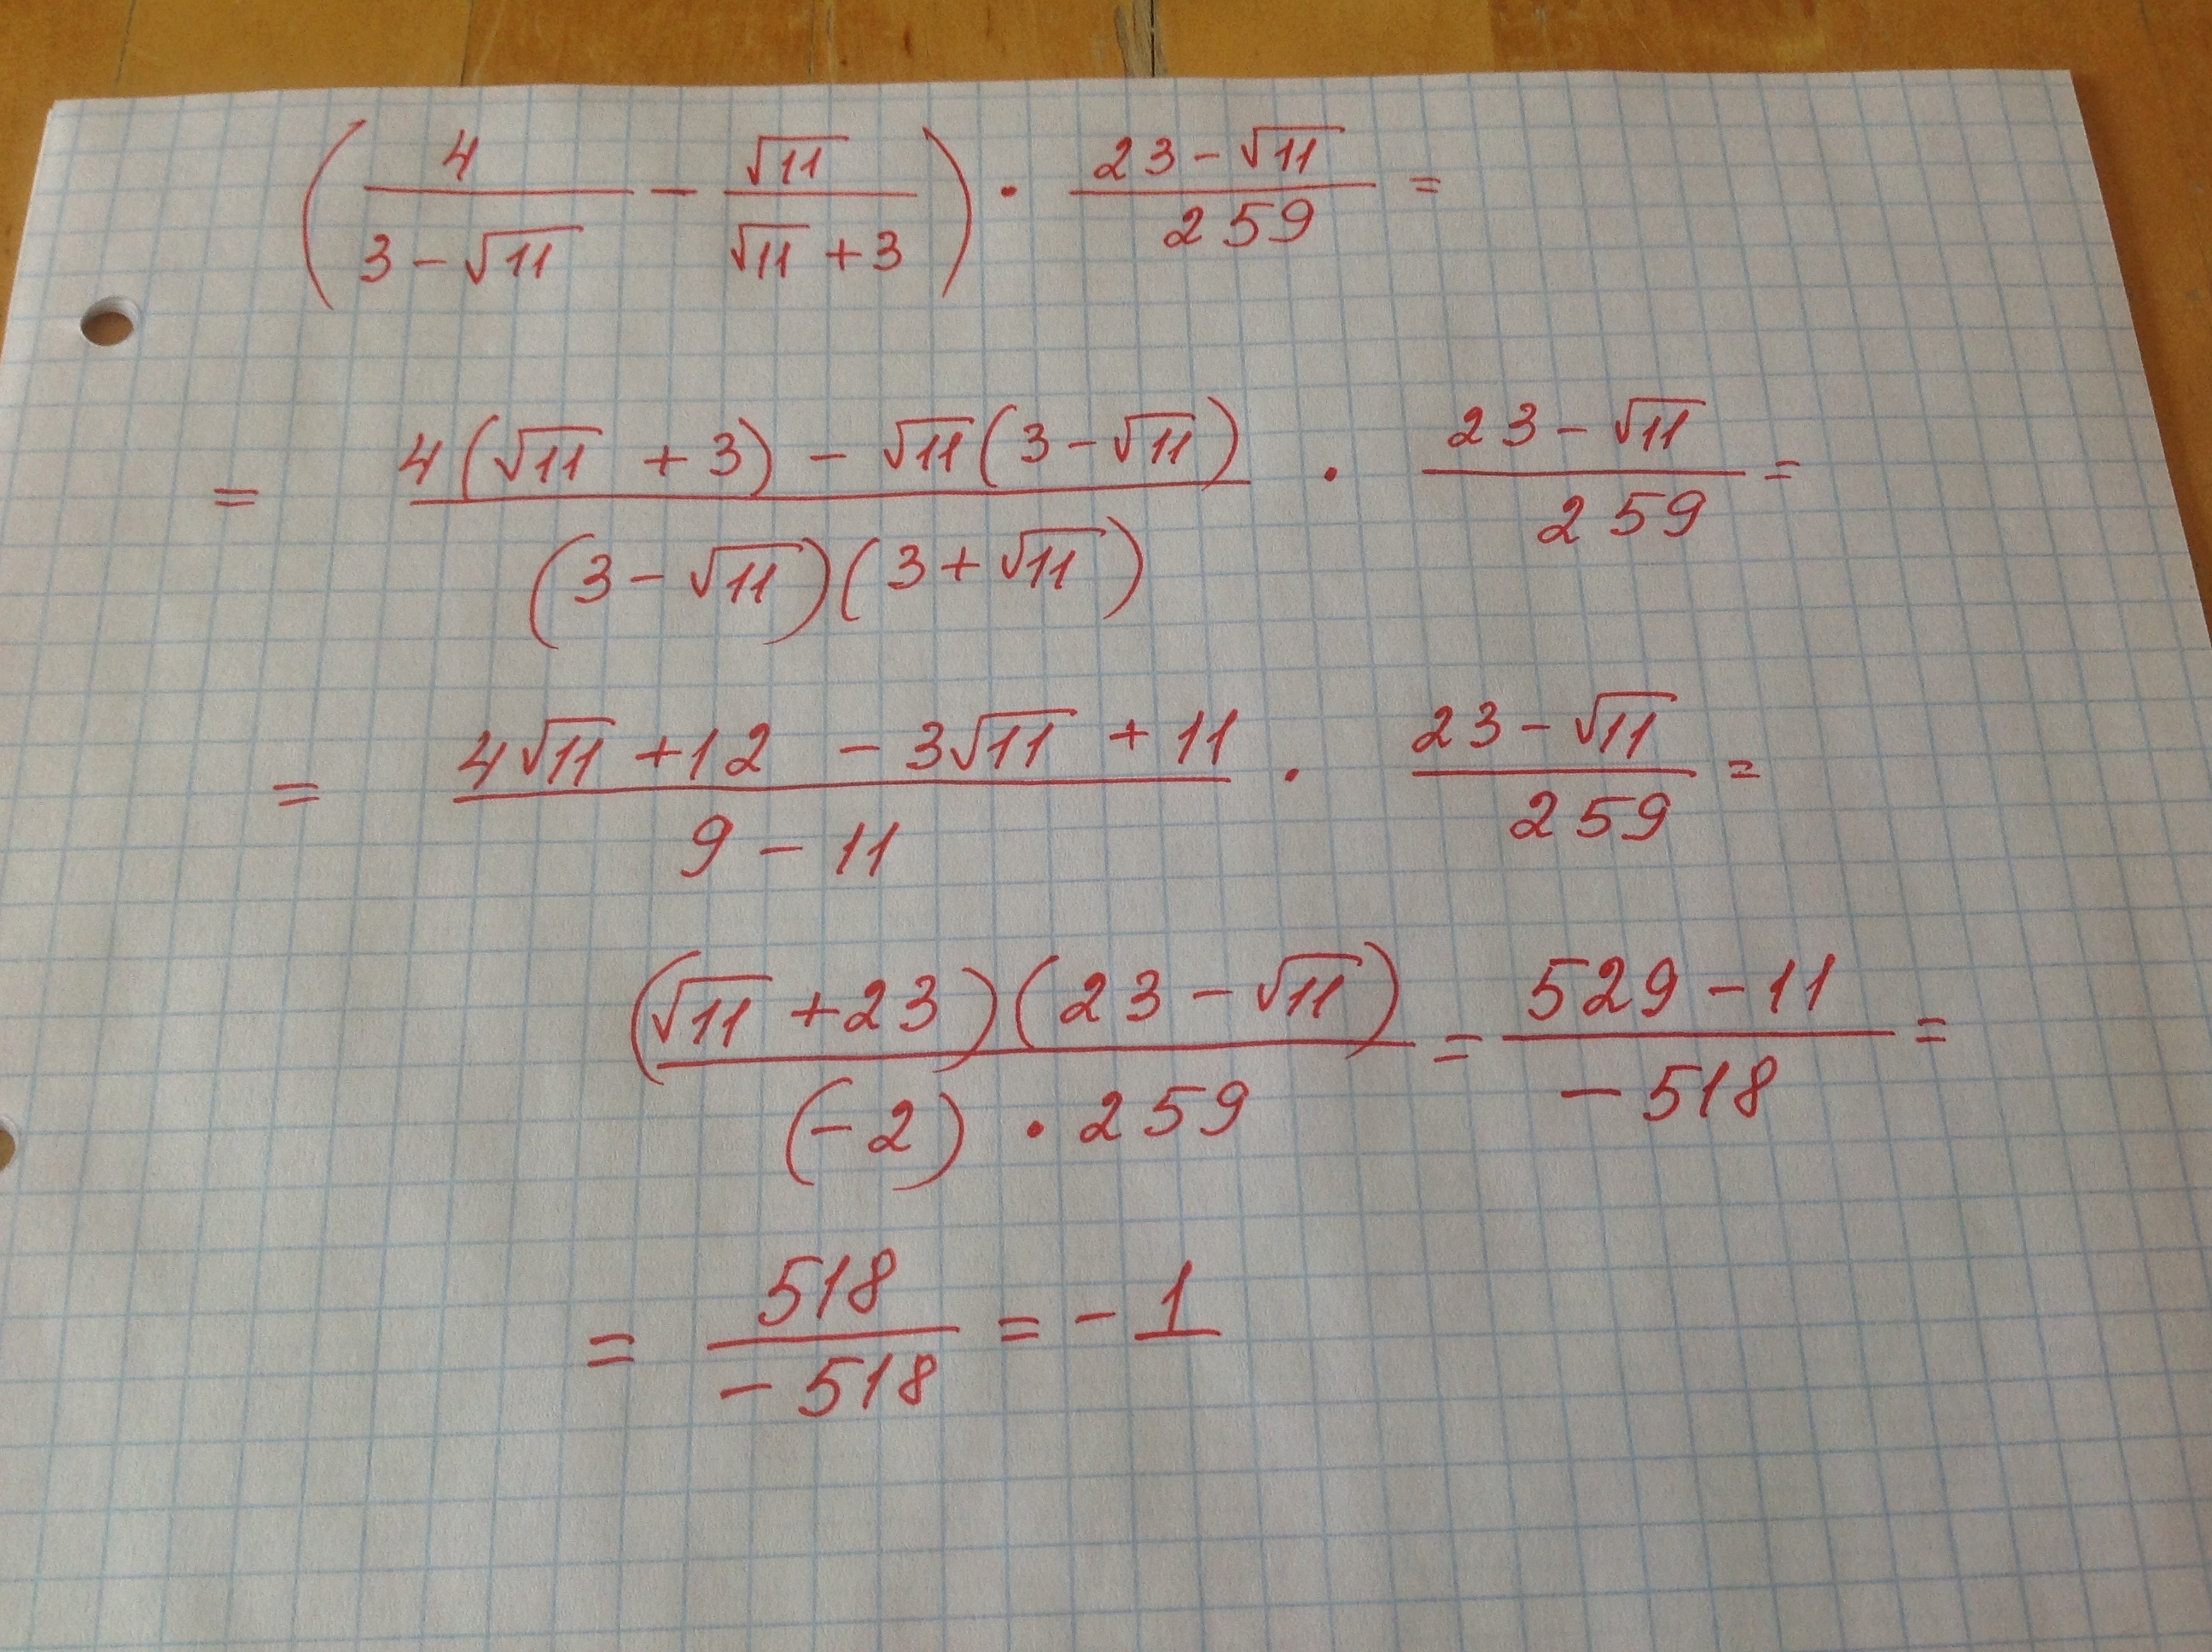 (4/(3-√11) - √11/(√11+3)) · (23-√11)/259 =
= (4(√11+3) - √11(3-√11))/((3-√11)(3+√11)) · (23-√11)/259 =
= (4√11+12 - 3√11+11)/(9-11) · (23-√11)/259 =
((√11+23)(23-√11))/((-2)·259) = (529-11)/(-518) =
= 518/(-518) = -1